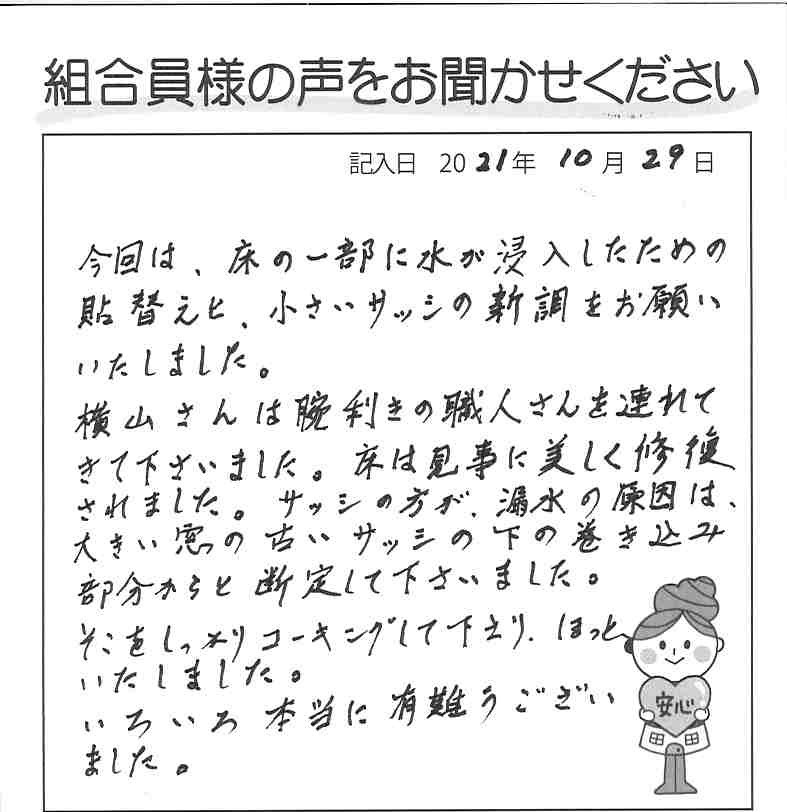 組合員様の声をお聞かせください
記入日 2021年 10月 29日
今回は、床の一部に水が浸入したための
貼替えと、小さいサッシの新調をお願い
いたしました。
横山さんは腕利きの職人さんを連れて
きて下さいました。床は見事に美しく修復
されました。サッシの方が、漏水の原因は、
大きい窓の古いサッシの下の巻き込み
部分からと断定して下さいました。
そこをしっかりコーキングして下さり、ほっと
いたしました。
いろいろ本当に有難うござい
ました。
安心